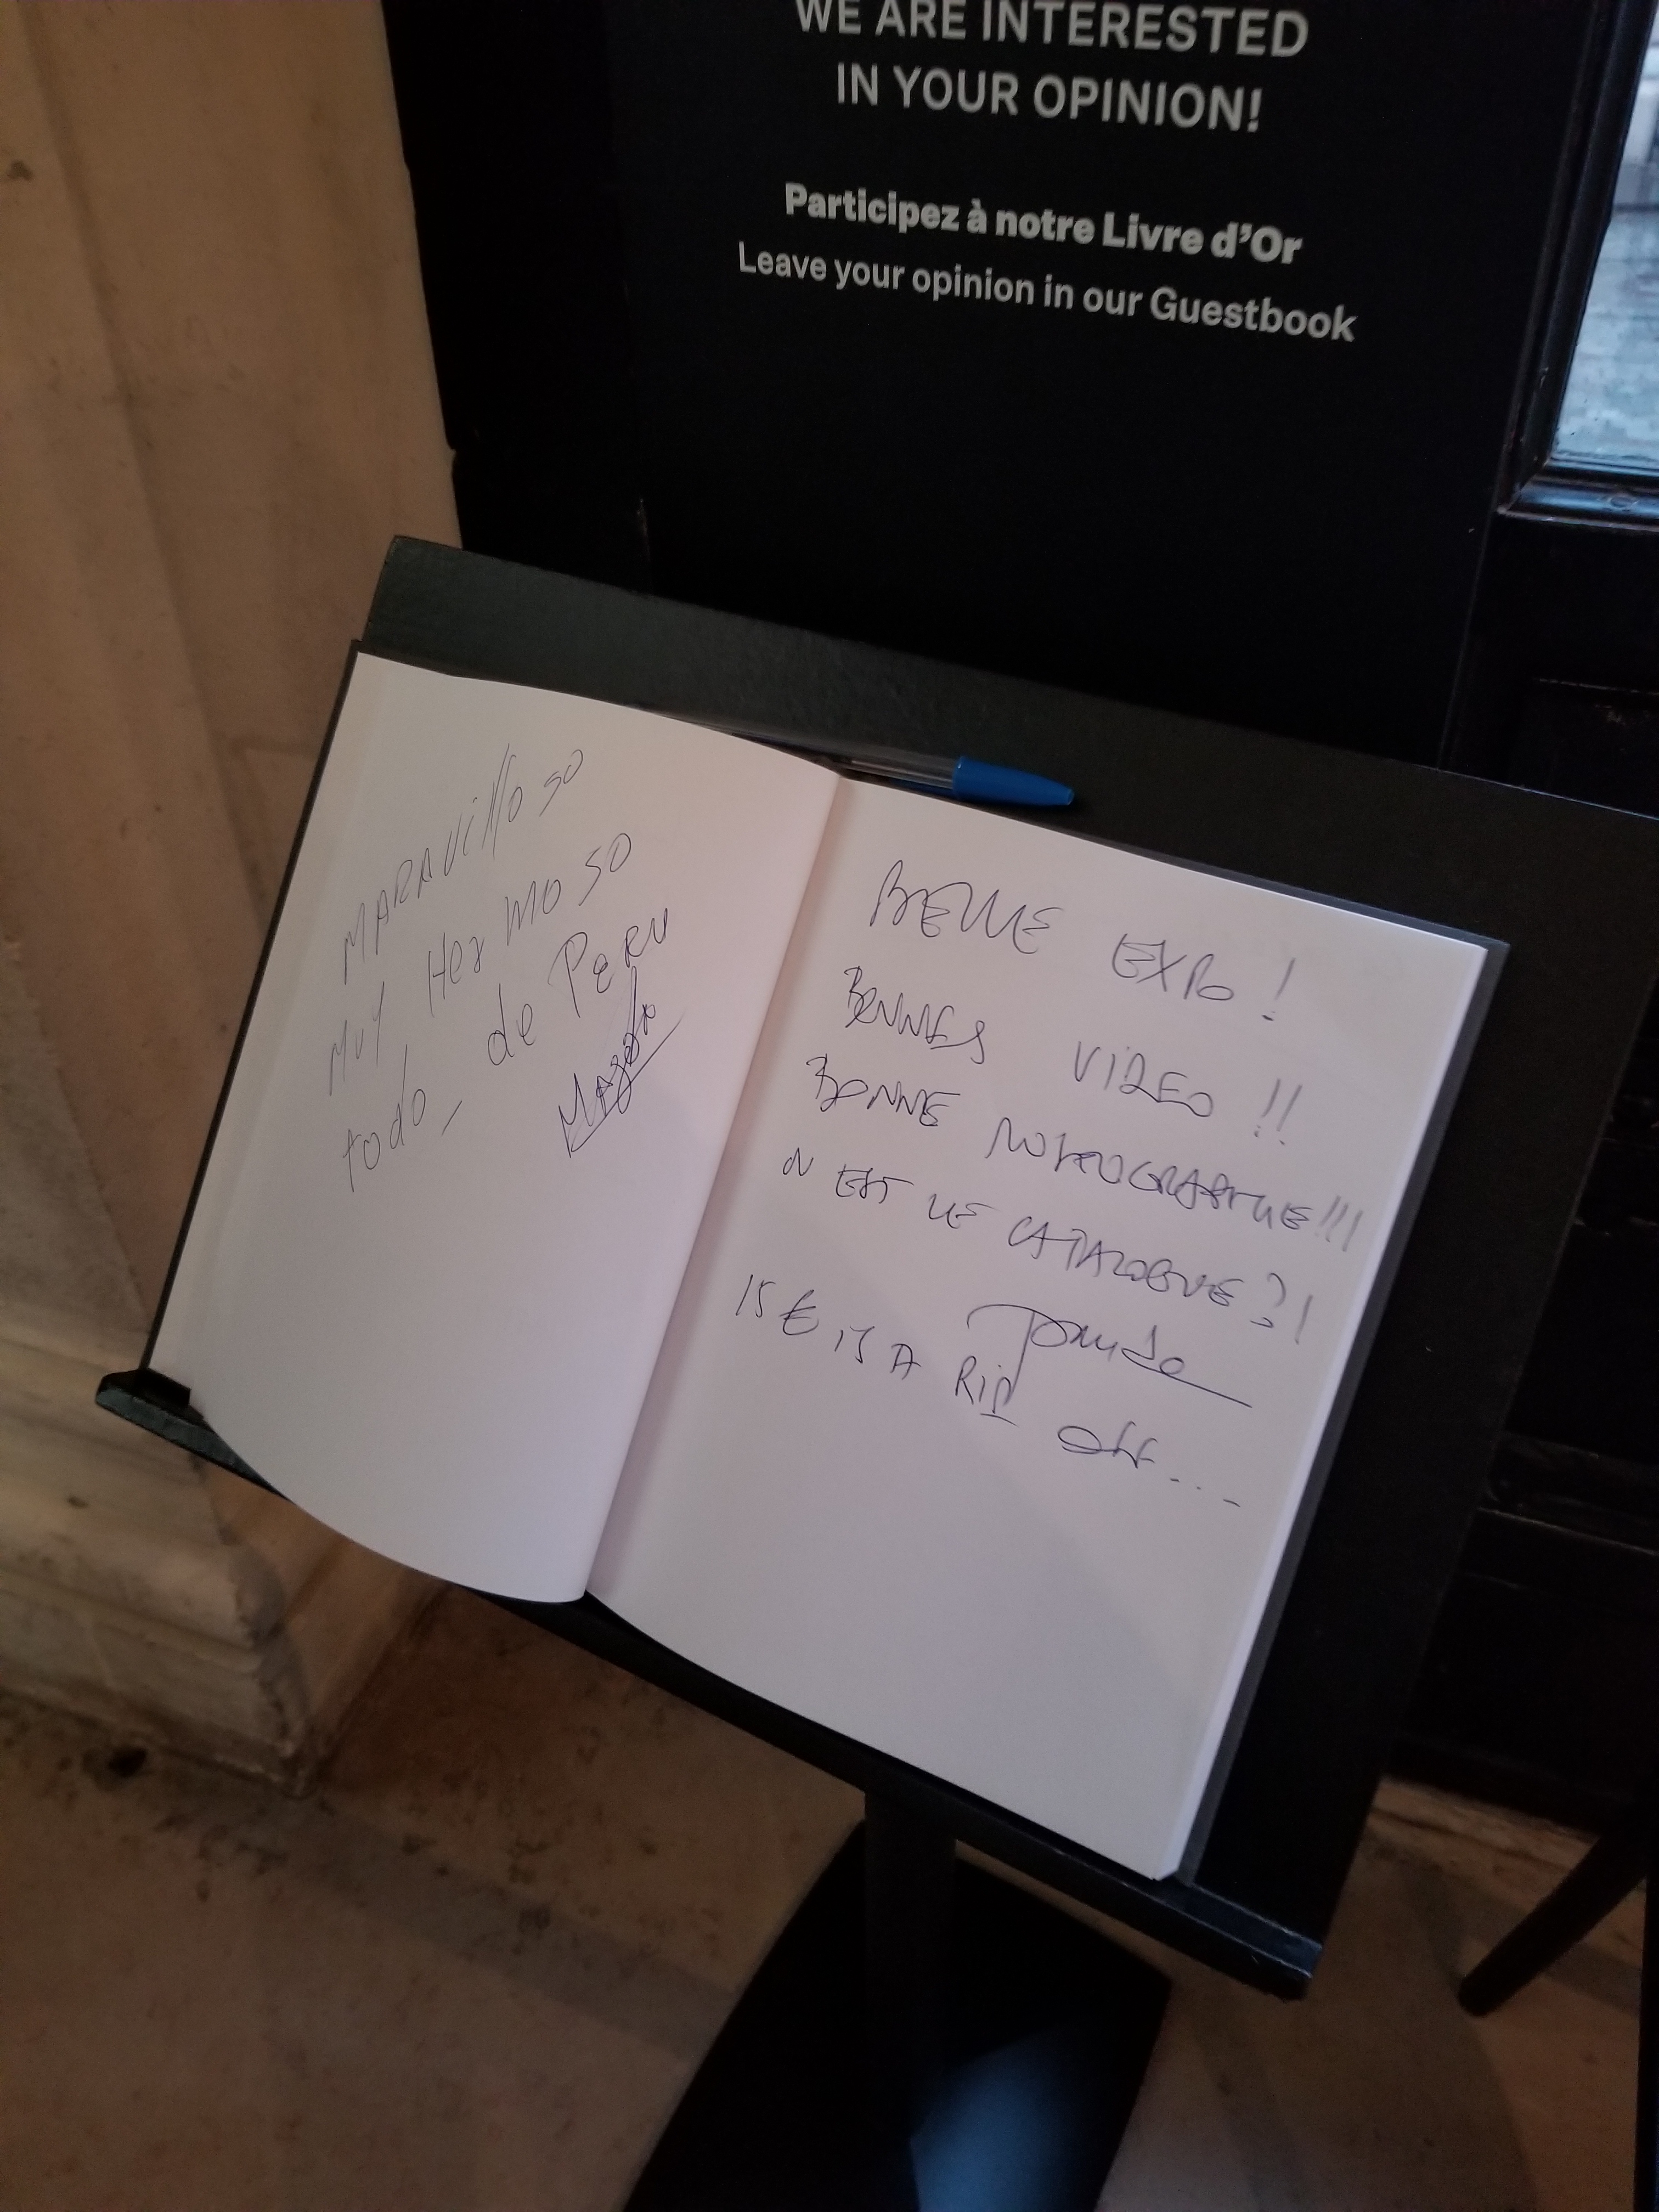 WE ARE INTERESTED
IN YOUR OPINION!
Participez à notre Livre d'Or
Leave your opinion in our Guestbook
MARAVilloso
MUY HerMOSO
todo de PERU
BELLE EXPO !
BONNES VIDEO !!
BONNE !!!
EST LE CATALOGUE ?!
15 € iS A RiP OFF...